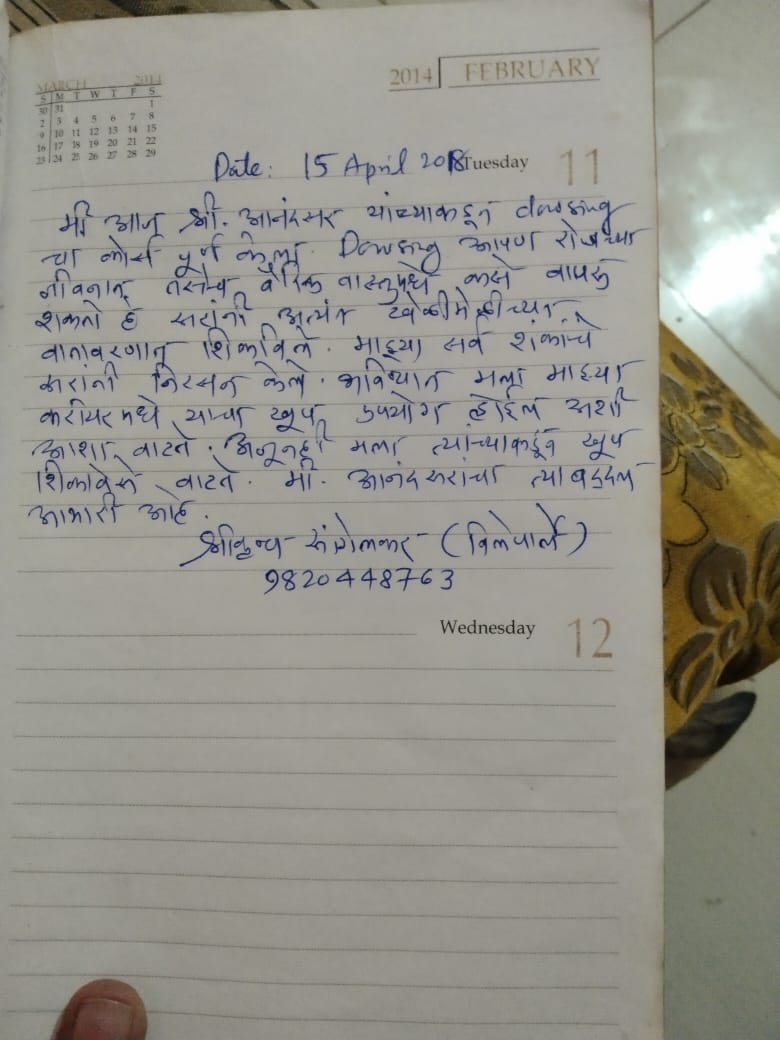 MARCH 2014
S M T W T F S
30 31 1
2 3 4 5 6 7 8
9 10 11 12 13 14 15
16 17 18 19 20 21 22
23 24 25 26 27 28 29
2014 FEBRUARY
Tuesday 11
Date: 15 April 2018
मी आज श्री. आनंदसर यांच्याकडून dowsing
चा कोर्स पूर्ण केला. Dowsing आपण रोजच्या
जीवनात तसेच वैदिक वास्तुमधे कसे वापरु
शकतो हे सरांनी अत्यंत खेळीमेळीच्या
वातावरणात शिकविले. माझ्या सर्व शंकांचे
सरांनी निरसन केले. भविष्यात मला माझ्या
करीयरमधे याचा खूप उपयोग होईल अशी
आशा वाटते. अजूनही मला त्यांच्याकडून खूप
शिकावेसे वाटते. मी. आनंद सरांचा त्याबद्दल
आभारी आहे.
श्रीकृष्ण (विलेपार्ले)
9820448763
Wednesday 12